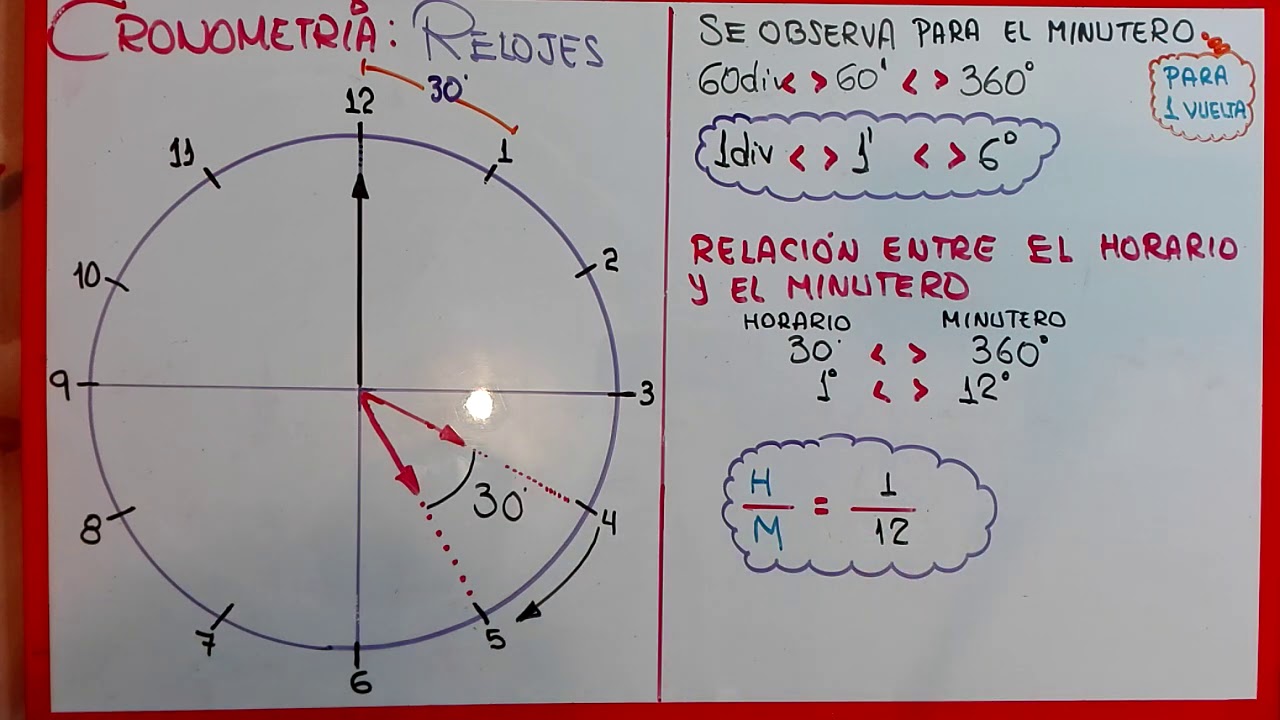 CRONOMETRÍA: RELOJES
30°
12
11
1
10
2
9
3
30°
8
4
7
5
6
SE OBSERVA PARA EL MINUTERO
60div < > 60' < > 360°
PARA
1 VUELTA
1div < > 1' < > 6°
RELACIÓN ENTRE EL HORARIO
Y EL MINUTERO
HORARIO MINUTERO
30° < > 360°
1° < > 12°
H/M = 1/12